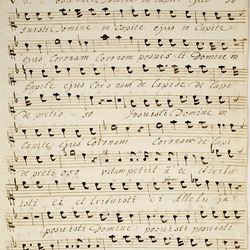 posuisti Domine in capite ejus
suisti Domine in Capite ejus in Capite
ejus Coronam Coronam posuisti Domine in
capite ejus Coronam de lapide de lapi
de pretio so posuisti Domine in
Capite ejus Coronam Coronam de lapi
de pretioso vitam petiit a te et tribu
isti et tribuisti ei alleluja
posuisti Domine posuisti posuisti